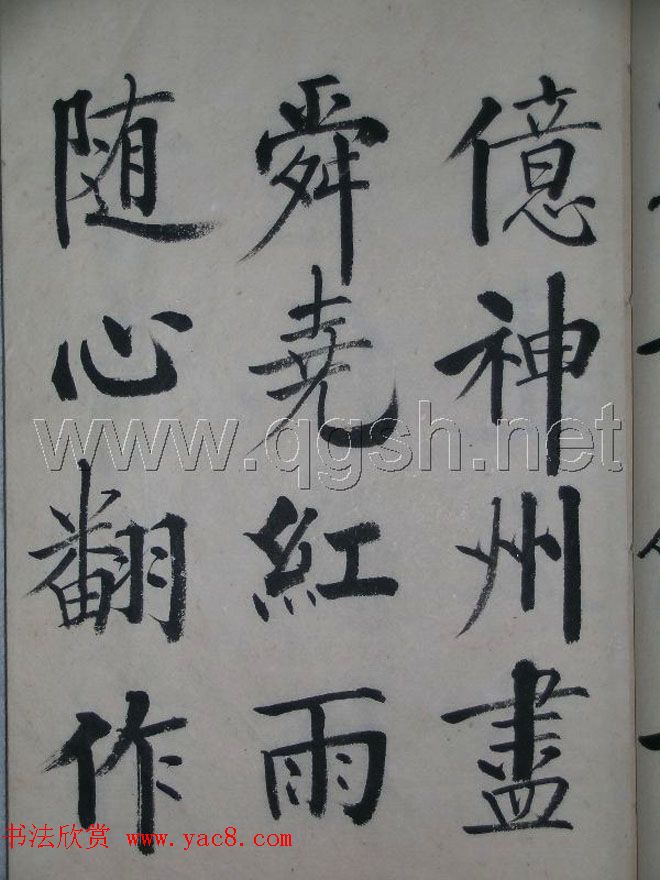 億神州盡
舜堯紅雨
随心翻作
www.qgsh.net
书法欣赏 www.yac8.com